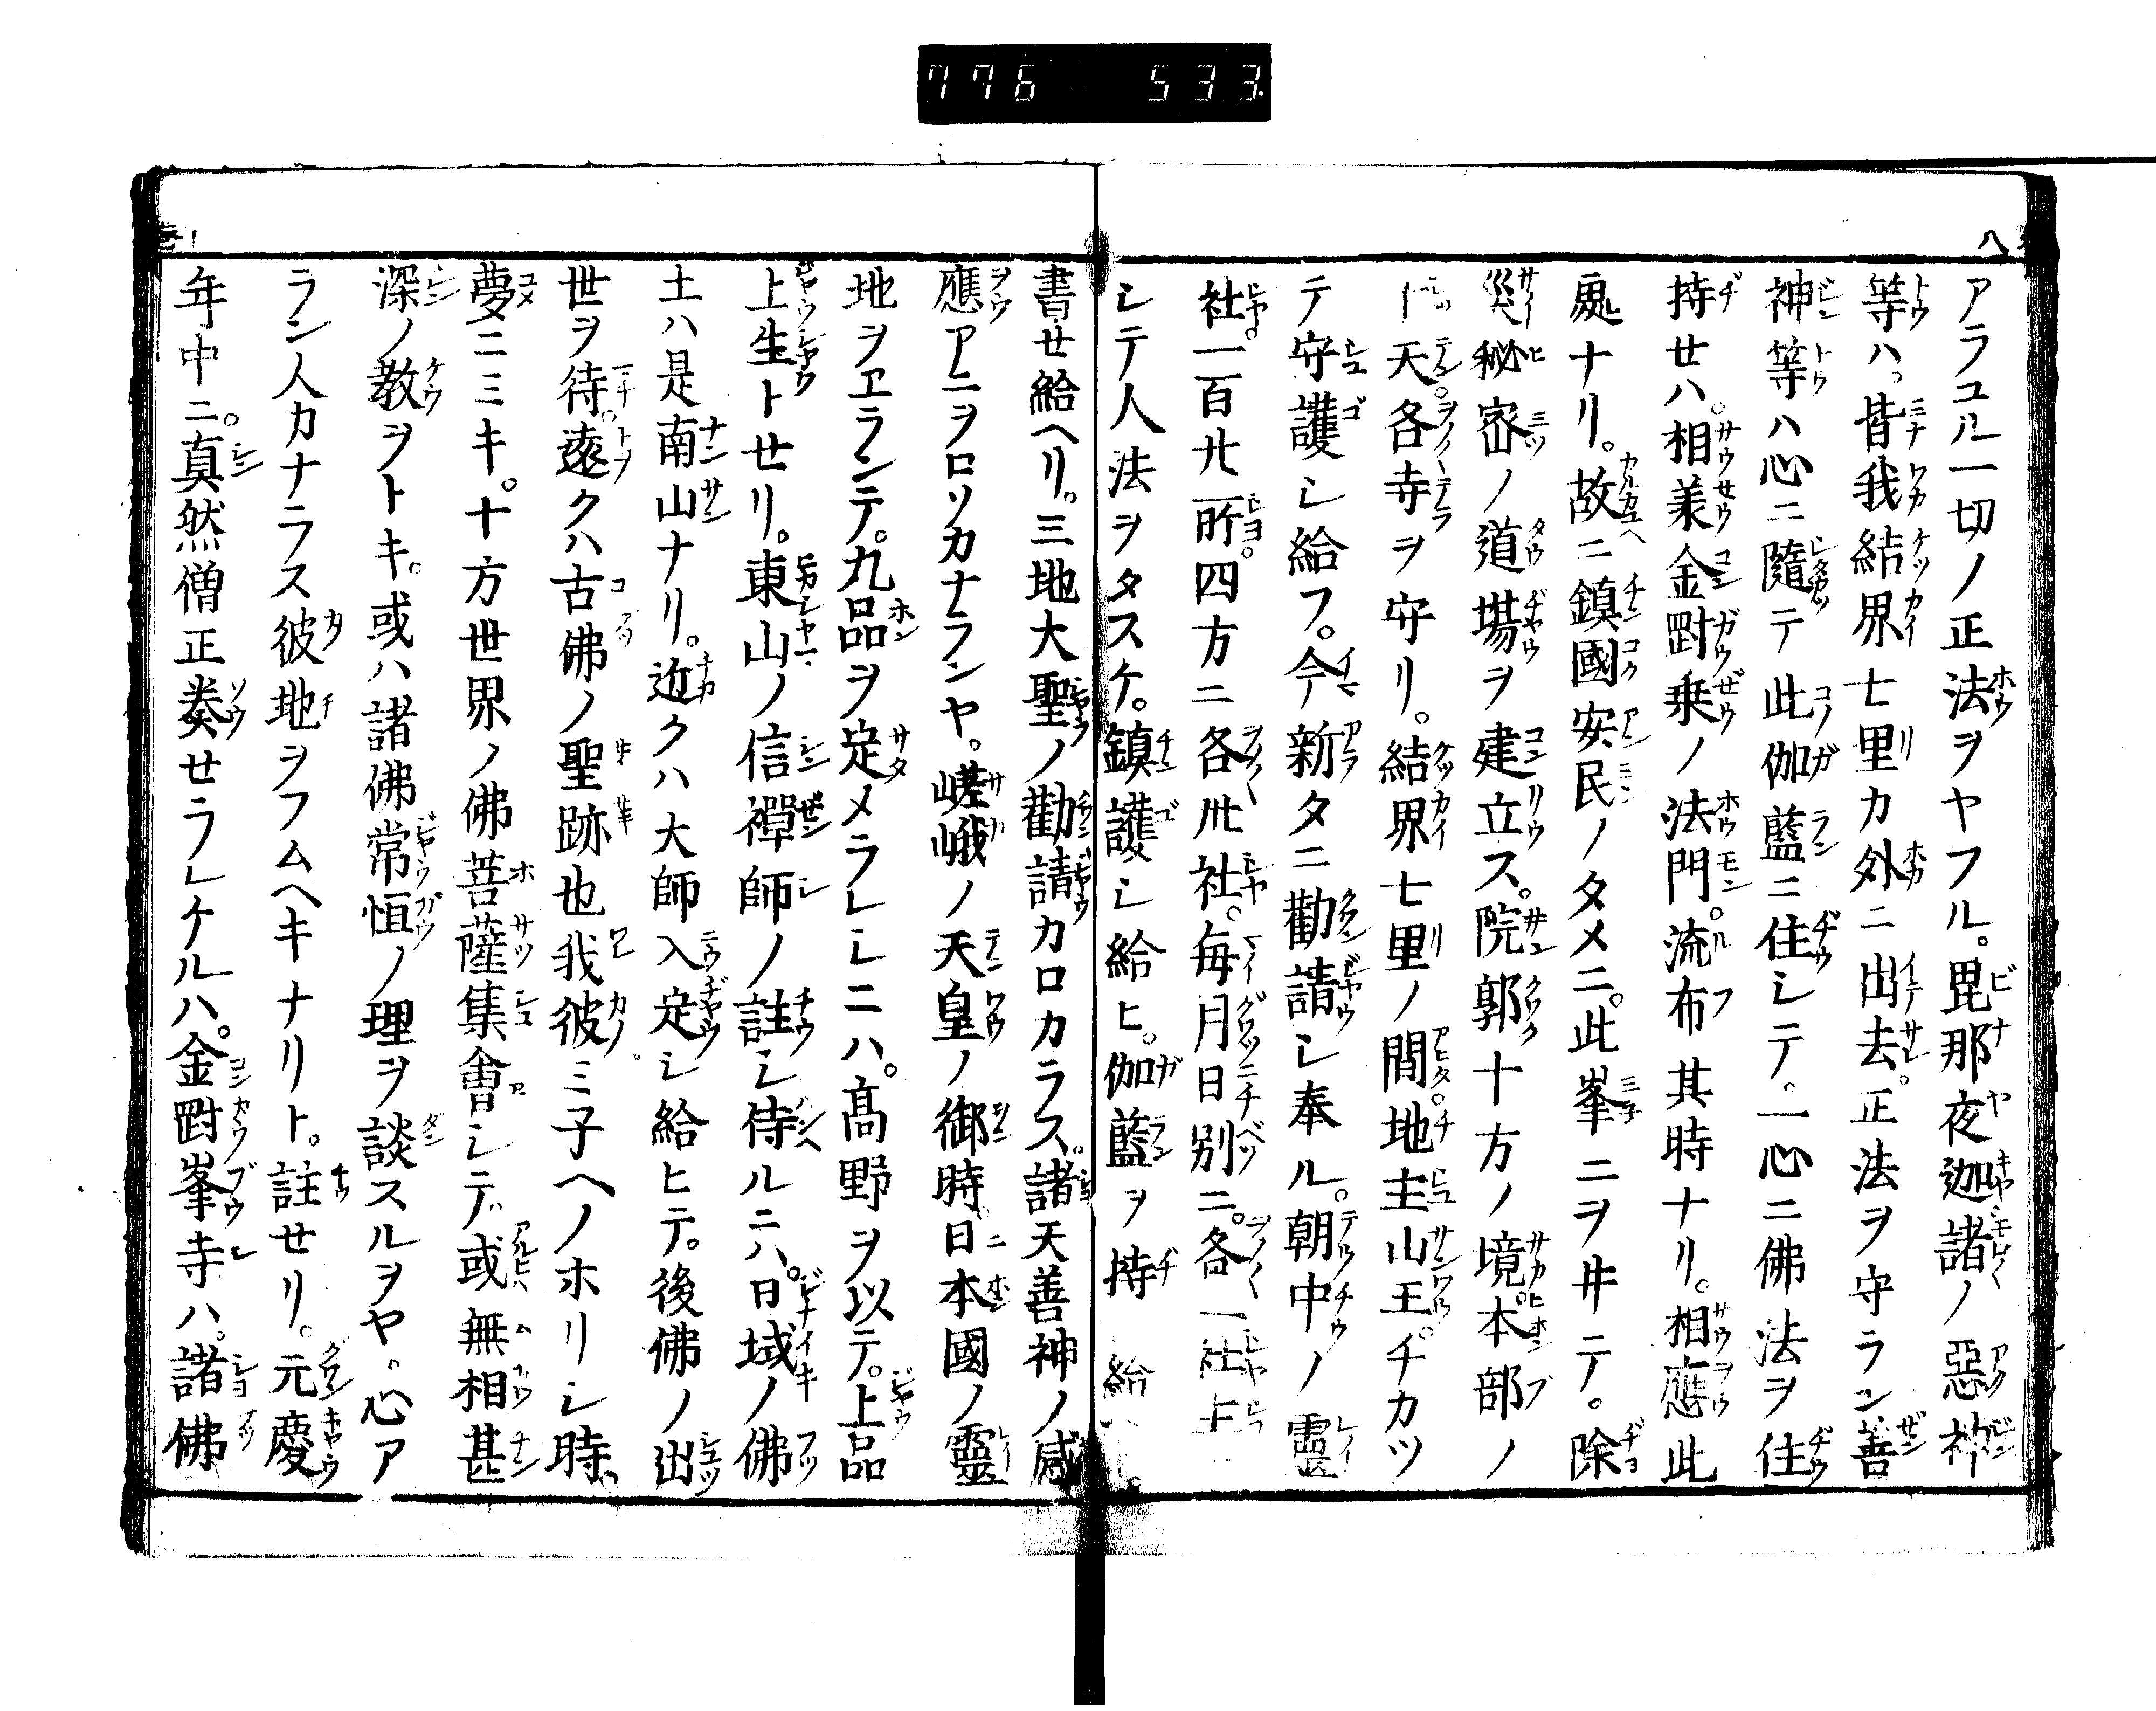 776 533
八
アラユル一切ノ正法ヲヤフル。毘那夜迦諸ノ惡神
等ハ。皆我結界七里カ外ニ出去。正法ヲ守ラン善
神等ハ心ニ隨テ此伽藍ニ住シテ。一心ニ佛法ヲ住
持せハ。相兼金剛乗ノ法門。流布其時ナリ。相應此
處ナリ。故ニ鎮國安民ノタメニ。此峯ニヲヰテ。除
災秘密ノ道場ヲ建立ス。院郭十方ノ境。本部ノ
天。各寺ヲ守リ。結界七里ノ間。地主山王。チカツ
テ守護シ給フ。今新タニ勸請シ奉ル。朝中ノ靈
社。一百廿所。四方ニ各卅社。毎月日別ニ。各一社
シテ人法ヲタスケ。鎮護シ給ヒ。伽藍ヲ持給
書せ給ヘリ。三地大聖ノ勸請カロカラス。諸天善神ノ感
應アニヲロソカナランヤ。嵯峨ノ天皇ノ御時。日本國ノ靈
地ヲヱランテ。九品ヲ定メラレシニハ。髙野ヲ以テ。上品
上生トせリ。東山ノ信禪師ノ註シ侍ルニハ。日域ノ佛
土ハ是南山ナリ。近クハ大師入定シ給ヒテ。後佛ノ出
世ヲ待。遠クハ古佛ノ聖跡也我彼ミ子ヘノホリシ時、
夢ニミキ。十方世界ノ佛菩薩集會シテ。或無相甚
深ノ教ヲトキ。或ハ諸佛常恒ノ理ヲ談スルヲヤ。心ア
ラン人カナラス彼地ヲフムヘキナリト。註せリ。元慶
年中ニ。真然僧正奏せラレケルハ。金剛峯寺ハ。諸佛